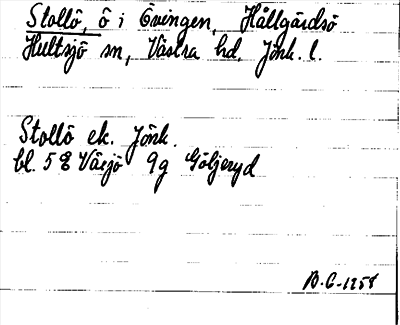 Stollö, ö i Övingen, Hållgårdsö
Hultsjö sn, Västra hd. Jönk. l.
Stollö ek. Jönk.
bl. 5 8 Växjö 9g Göljeryd
B.G-1958